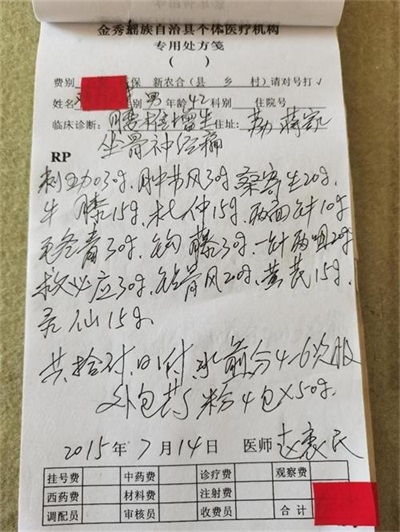 金秀瑶族自治县个体医疗机构
专用处方笺
( )
费别 保 新农合(县 乡 村)请对号打√
姓名 男 年龄 42 科别 住院号
临床诊断: 腰椎增生 住址:
坐骨神经痛
RP
30g. 肿节风30g. 桑寄生20g.
牛膝15g. 杜仲15g. 两面针10g
30g. 钩藤30g. 一针两咀20g
救必应30g. 钻骨风20g. 黄芪15g.
灵仙15g.
共拾付. 日1付 水煎分4-6次服
外包药粉4包X50g.
2015年7月14日 医师
挂号费 中药费 诊疗费 观察费
西药费 材料费 注射费
调配员 审核员 收费员 合计